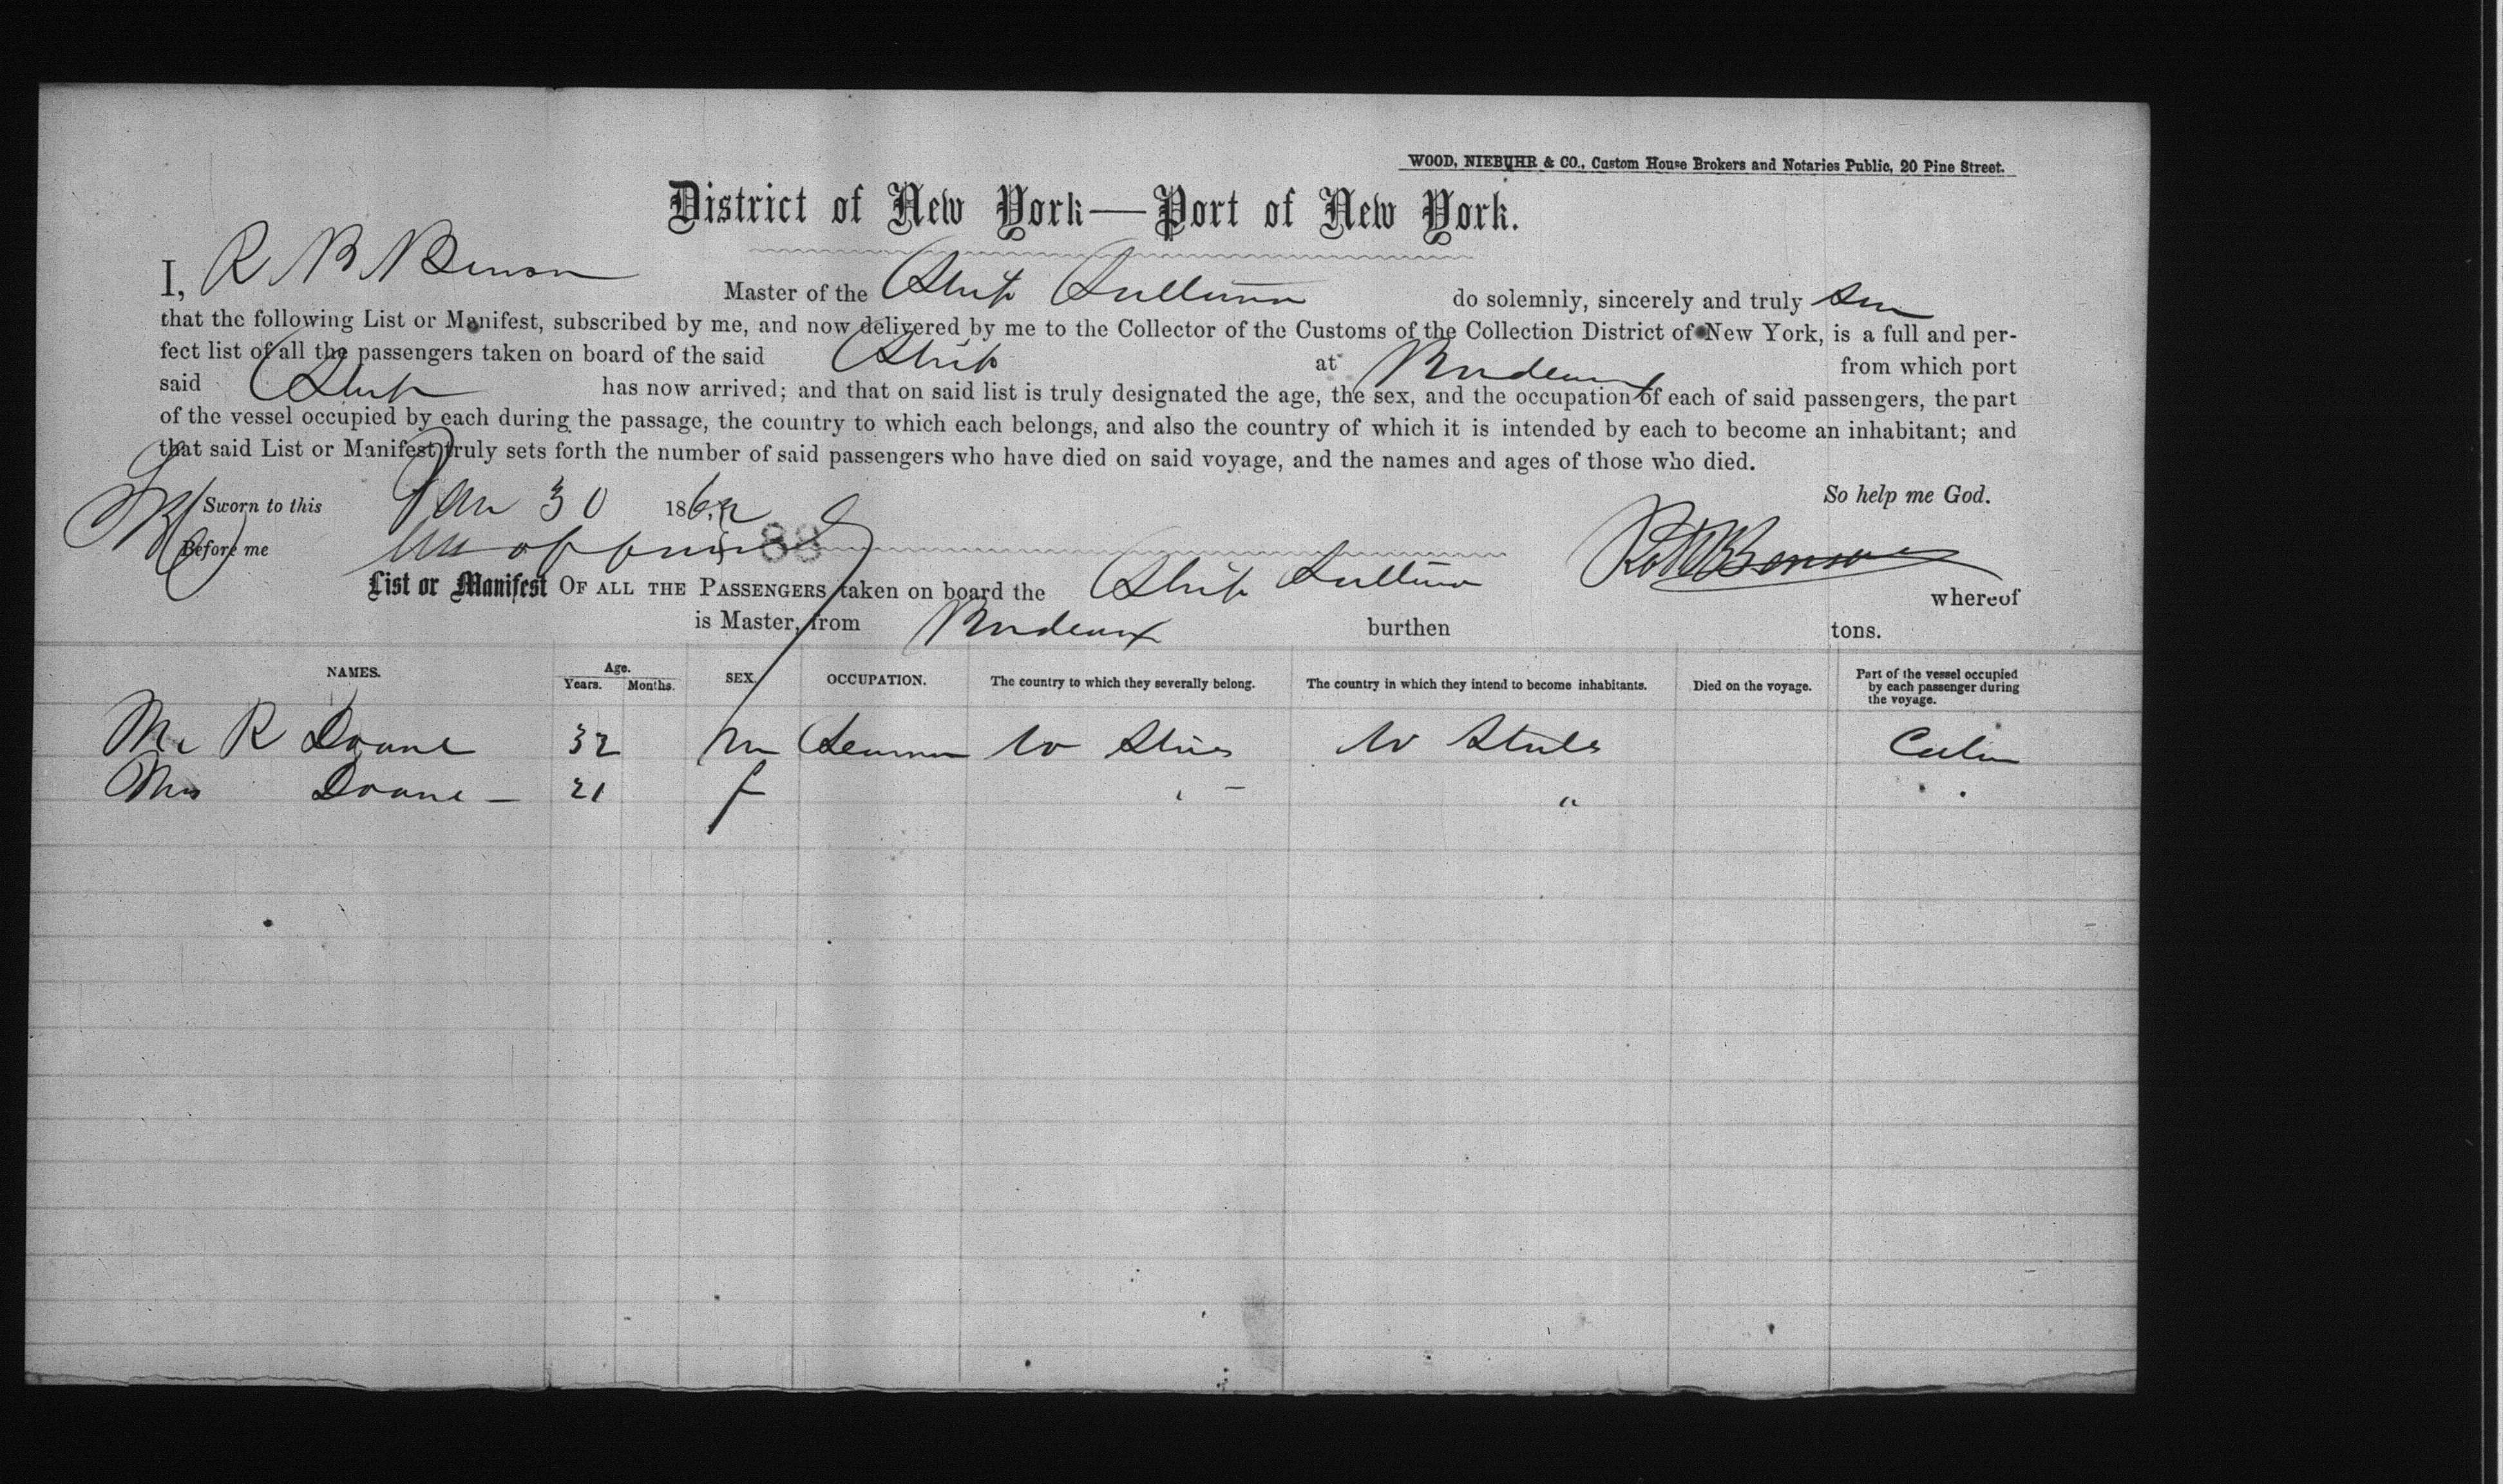 WOOD, NIEBUHR & CO., Custom House Brokers and Notaries Public, 20 Pine Street.
District of New York—Port of New York.
I, R B Benson Master of the Ship do solemnly, sincerely and truly
that the following List or Manifest, subscribed by me, and now delivered by me to the Collector of the Customs of the Collection District of New York, is a full and per-
fect list of all the passengers taken on board of the said Ship at Bordeaux from which port
said Ship has now arrived; and that on said list is truly designated the age, the sex, and the occupation of each of said passengers, the part
of the vessel occupied by each during the passage, the country to which each belongs, and also the country of which it is intended by each to become an inhabitant; and
that said List or Manifest truly sets forth the number of said passengers who have died on said voyage, and the names and ages of those who died.
So help me God.
Sworn to this Jan 30 1862
Before me 88 Benson
List or Manifest OF ALL THE PASSENGERS taken on board the Ship whereof
is Master, from Bordeaux burthen tons.
NAMES. Age. Years. Months. SEX. OCCUPATION. The country to which they severally belong. The country in which they intend to become inhabitants. Died on the voyage. Part of the vessel occupied by each passenger during the voyage.
Mr R Doane 32 m Seaman U States U States Cabin
Mrs Doane — 21 f " "